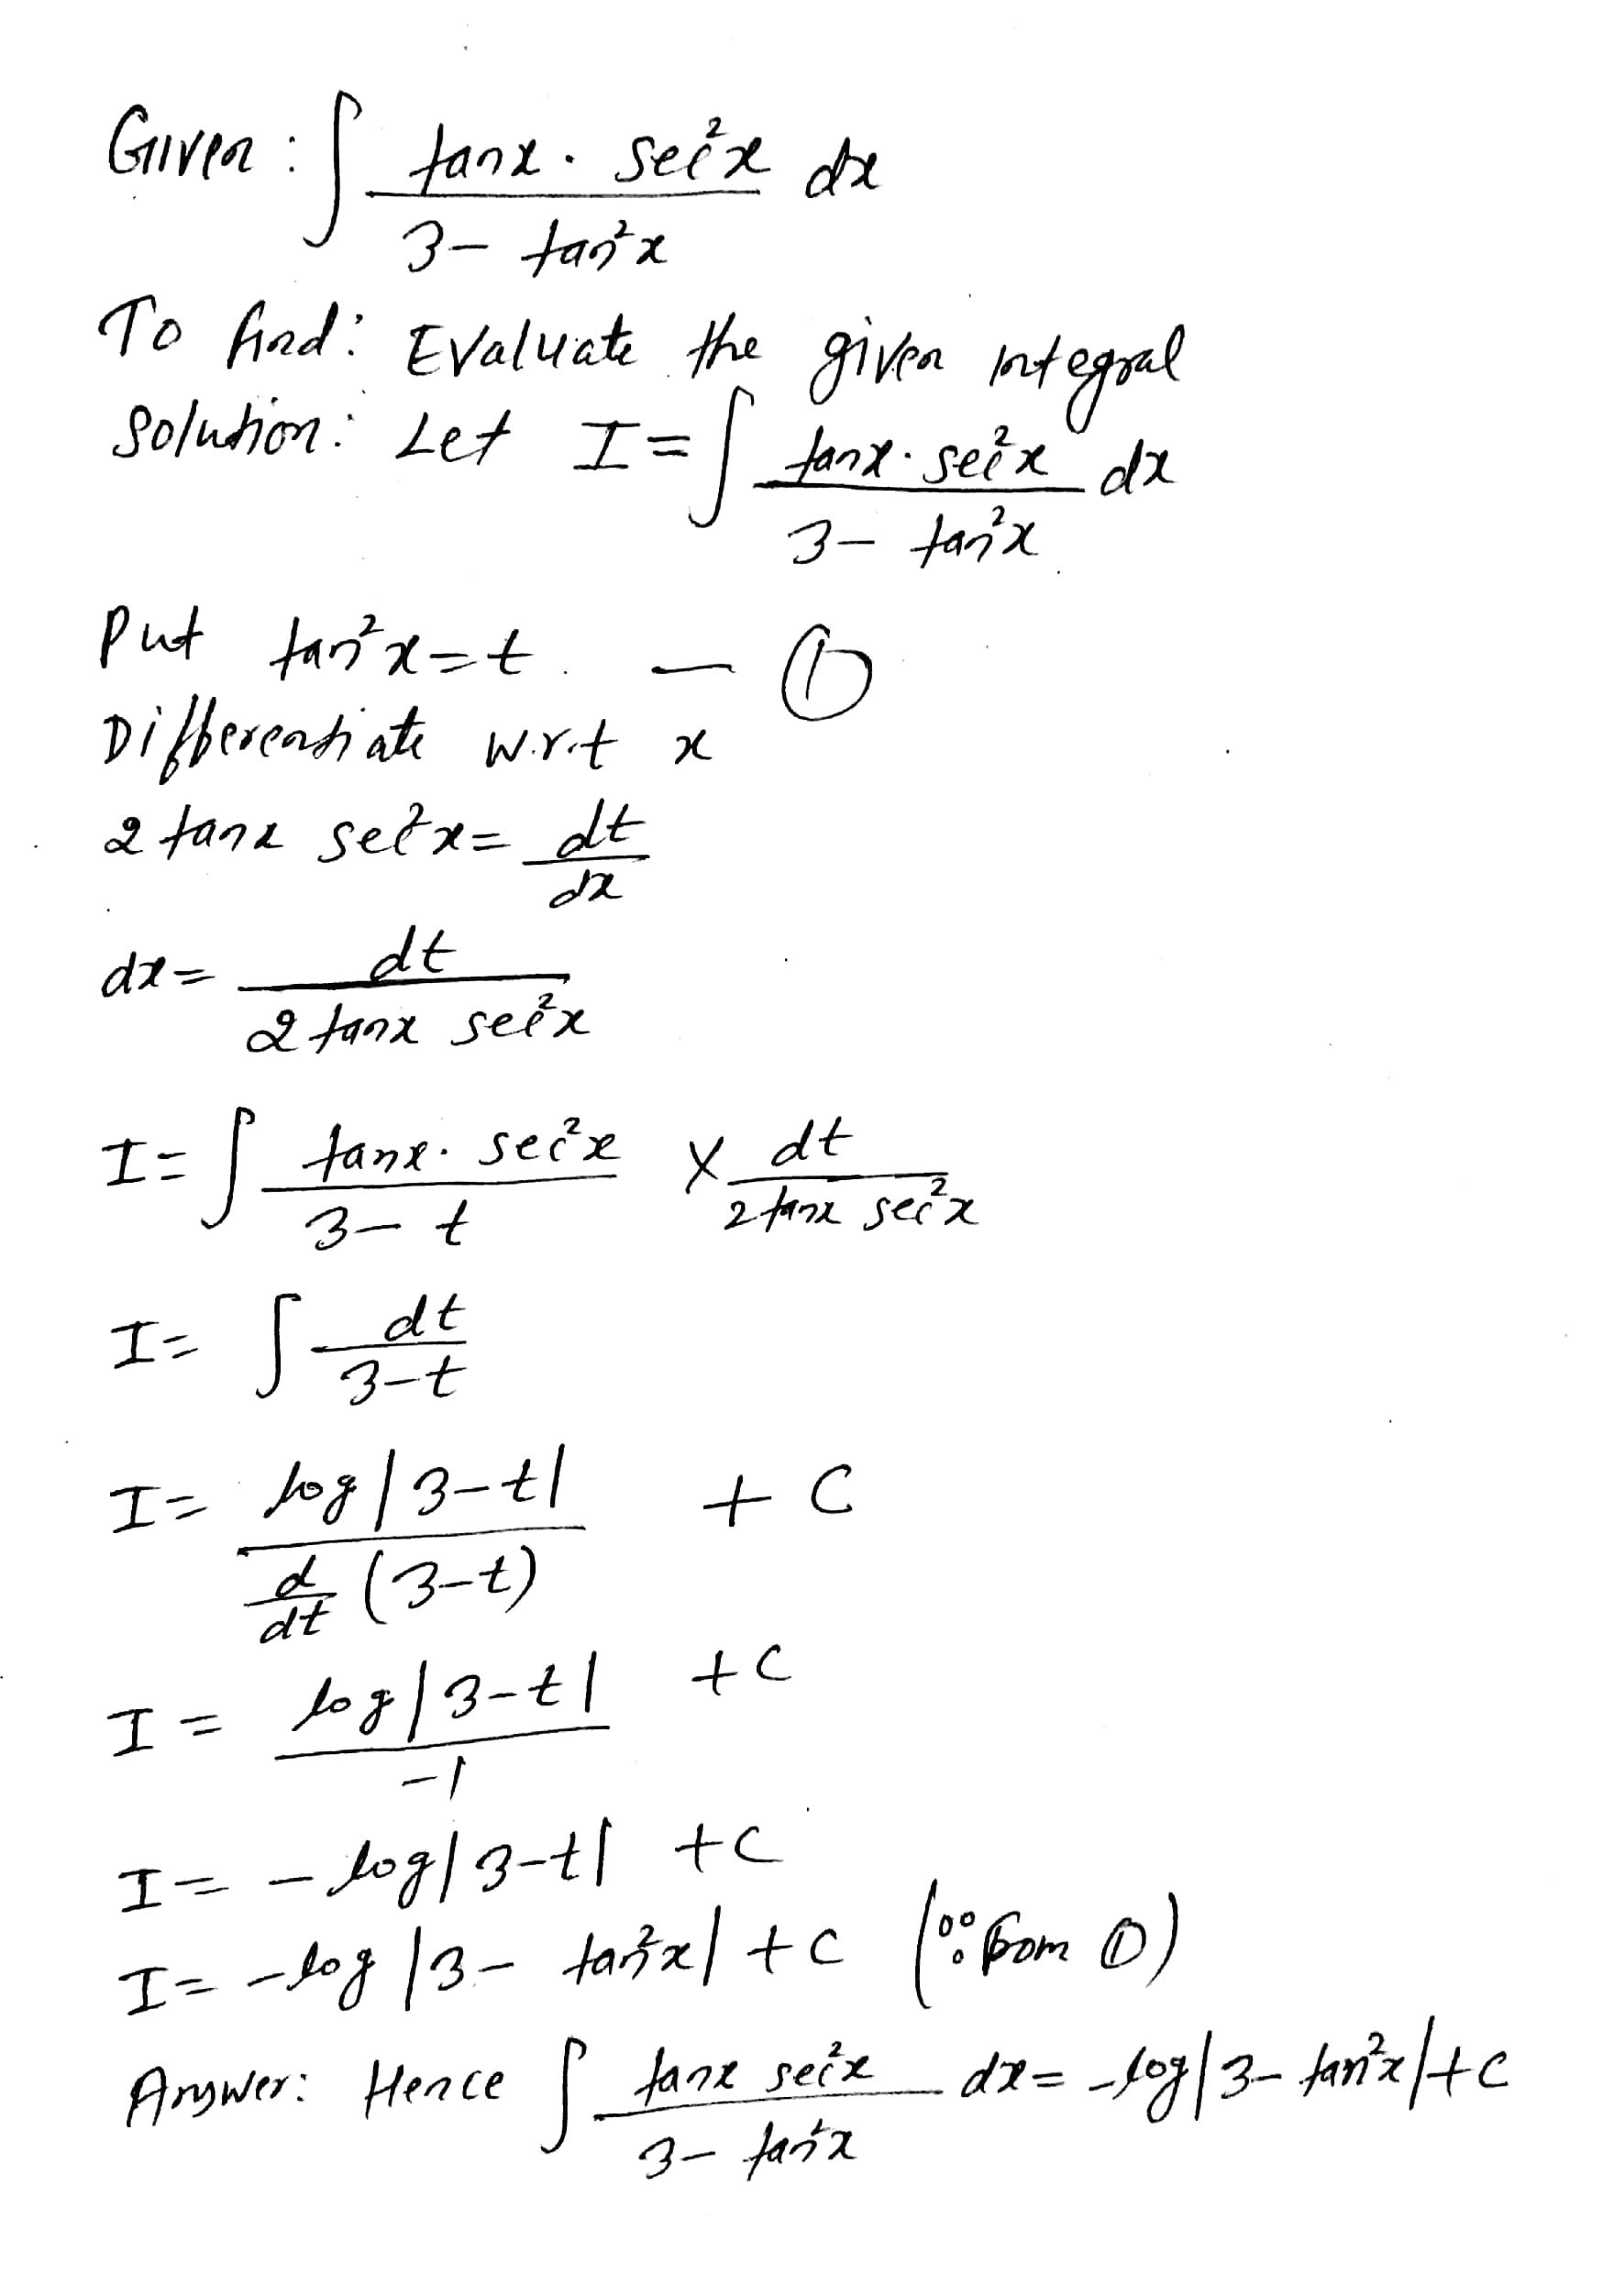 Given: ∫ tanx · sec²x / 3 − tan²x dx
To find: Evaluate the given integral
Solution: Let I = ∫ tanx · sec²x / 3 − tan²x dx
Put tan²x = t. — ①
Differentiate w.r.t x
2 tanx sec²x = dt/dx
dx = dt / 2 tanx sec²x
I = ∫ tanx · sec²x / 3 − t × dt / 2 tanx sec²x
I = ∫ dt / 3−t
I = log|3−t| / d/dt (3−t) + C
I = log|3−t| / −1 + C
I = − log|3−t| + C
I = −log|3 − tan²x| + C (∵ from ①)
Answer: Hence ∫ tanx sec²x / 3 − tan²x dx = −log|3 − tan²x| + C